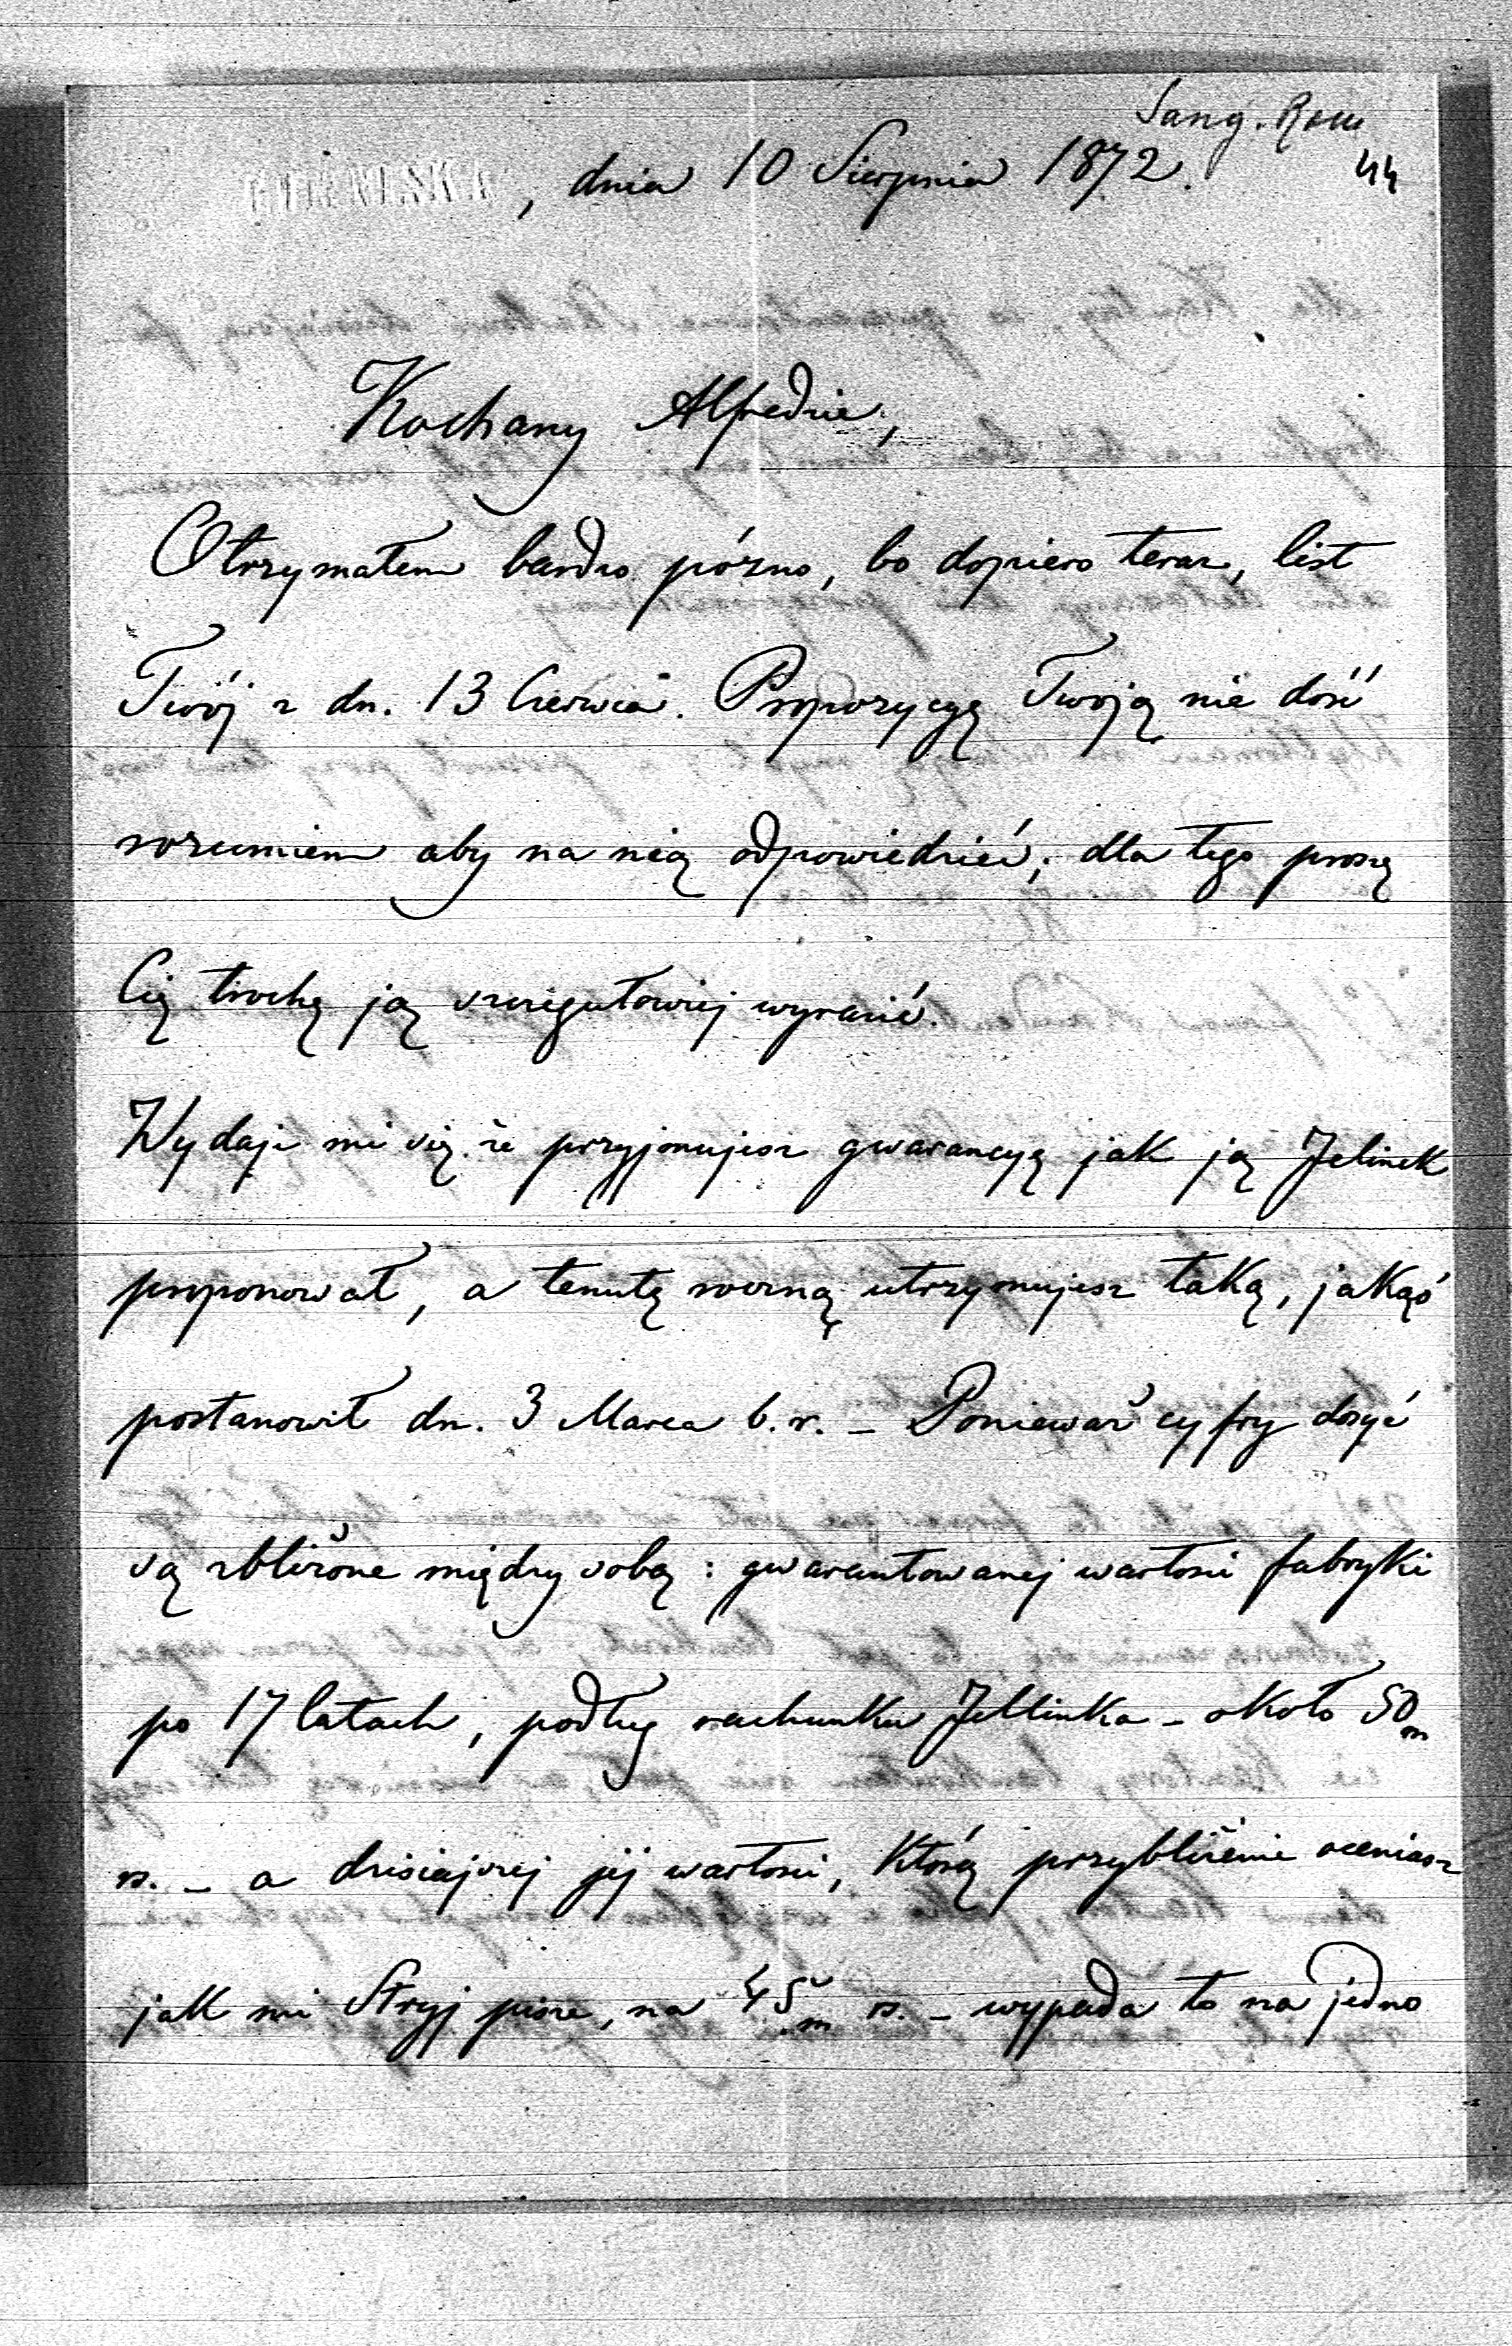 Sang. Rom
44
, dnia 10 Sierpnia 1872.
Kochany Alfredzie,
Otrzymałem bardzo późno, bo dopiero teraz, list
Twój z dn. 13 Czerwca. Propozycyą Twoją nie dość
rozumiem aby na nią odpowiedzieć; dla tego proszę
Cię trochę ją szczegółowiej wyrazić.
Wydaje mi się że przyjmujesz gwarancyą jak ją Jelinek
proponował, a tenutę roczną utrzymujesz taką, jakąś
postanowił dn. 3 Marca b.r. – Ponieważ cyfry dosyć
są zbliżone między sobą: gwarantowanej wartości fabryki
po 17 latach, podług rachunku Jellinka – około 50 m
rs. – a dzisiajszej jéj wartości, którą przybliżenie oceniasz
jak mi Stryj pisze, na 45 m rs. – wypada to na jedno